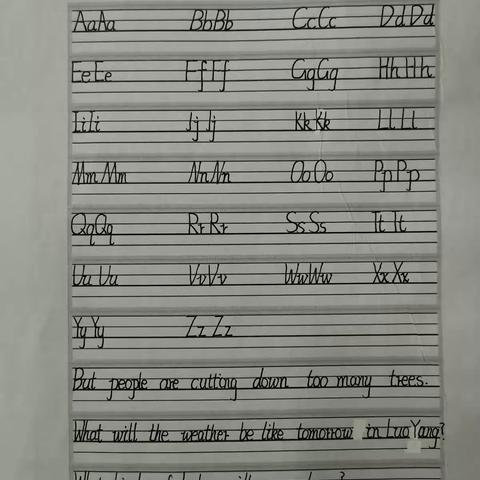 AaAa BbBb CcCc DdDd
EeEe FfFf GgGg HhHh
IiIi JjJj KkKk LlLl
MmMm NnNn OoOo PpPp
QqQq RrRr SsSs TtTt
UuUu VvVv WwWw XxXx
YyYy ZzZz
But people are cutting down too many trees.
What will the weather be like tomorrow in LuoYang?